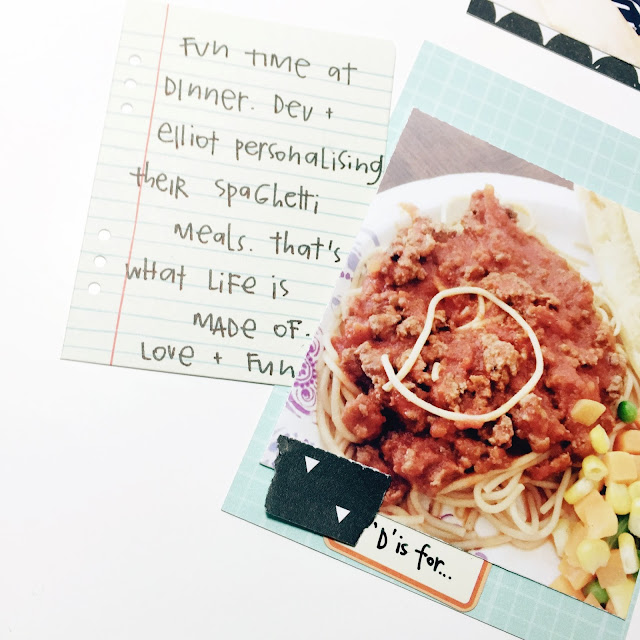 Fun time at
Dinner. Dev +
Elliot personalising
their spaghetti
meals. that's
what life is
made of.
Love + Fun
'D' is for...